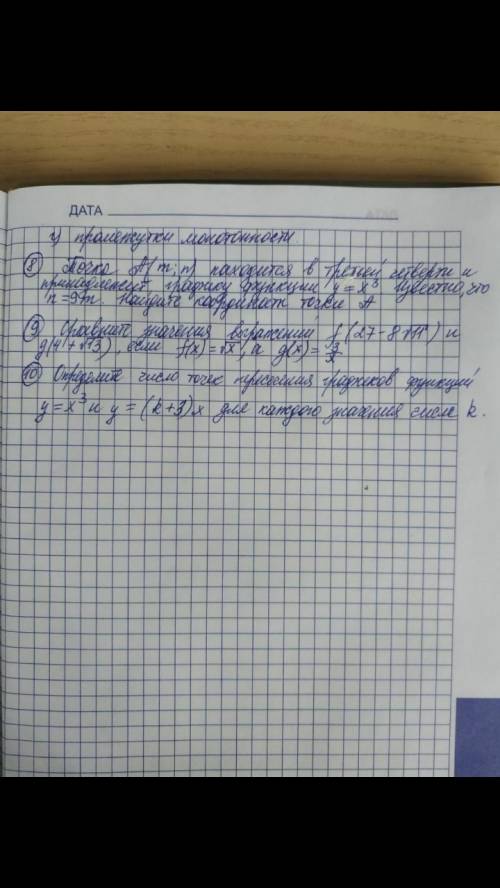 ДАТА
г) промежутки монотонности.
⑧ Точка A(m; n) находится в третьей четверти и
принадлежит графику функции y = x³. Известно, что
n = 9m. Найдите координаты точки A
⑨ Сравните значения выражений f(27-8√11) и
g(4+√13), если f(x)=√x, а g(x)=3/x
⑩ Определите число точек пересечения графиков функций
y = x³ и y = (k+3)x для каждого значения числа k.